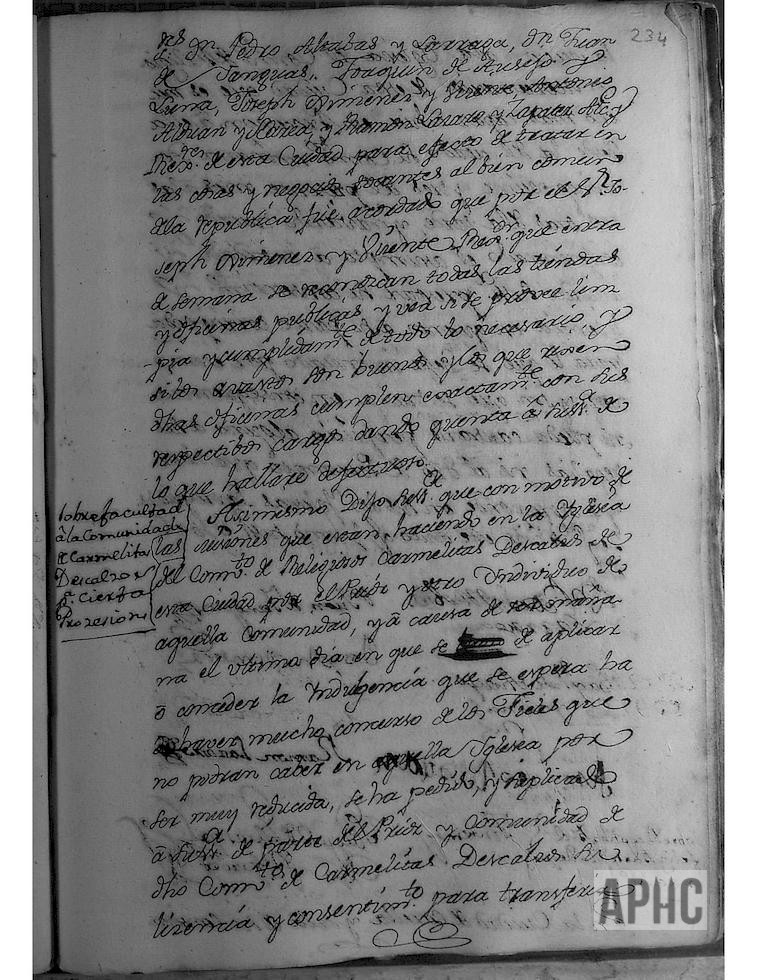 234
res Dn. Pedro Alrabas y Larraga, Dn. Juan
de Sanguas, Joaquin de Ausejo y
Luna, Joseph Ximenez y Vicente, Antonio
Adrian y Marca, y Ramon Lazaro y Lapater
Rexres. de esta Ciudad para efecto de tratar en
las cosas y negocios tocantes al bien comun
dela republica, fue acordado que por el Sr. Jo-
seph Ximenez y Vicente Rexor. que entra
de semana se reconozcan todas las tiendas
y oficinas publicas, y vea si se provee lim
pia y cumplidamte. de todo lo necesario, y
si los son buenos y los que rixen
dhas oficinas cumplen exactamte. con sus
respectibos cargos dando quenta â su sa. de
lo que hallare defectuoso.
Asimismo Dijo su sa. que con motivo de
sobre facultad
â la Comunidad
de Carmelitas
Descalzos
pa. cierta
Prozesion
las misiones que estan haciendo en la Yglesia
del Comto. de Religiosos Carmelitas Descalzos de
esta Ciudad por el Prior y otro Yndividuo de
aquella Comunidad, y â causa de ser maña-
na el ultimo dia en que se de aplicar
ô conceder la Yndulgencia que se espera ha
haver mucho concurso de los Fieles que
no podran caber en aquella Yglesia por
ser muy reducida, se ha pedido, y suplicado
â su sa. de parte del Prior y Comunidad de
dho Comto. de Carmelitas Descalzos su
licencia y consentimto. para transferir
APHC